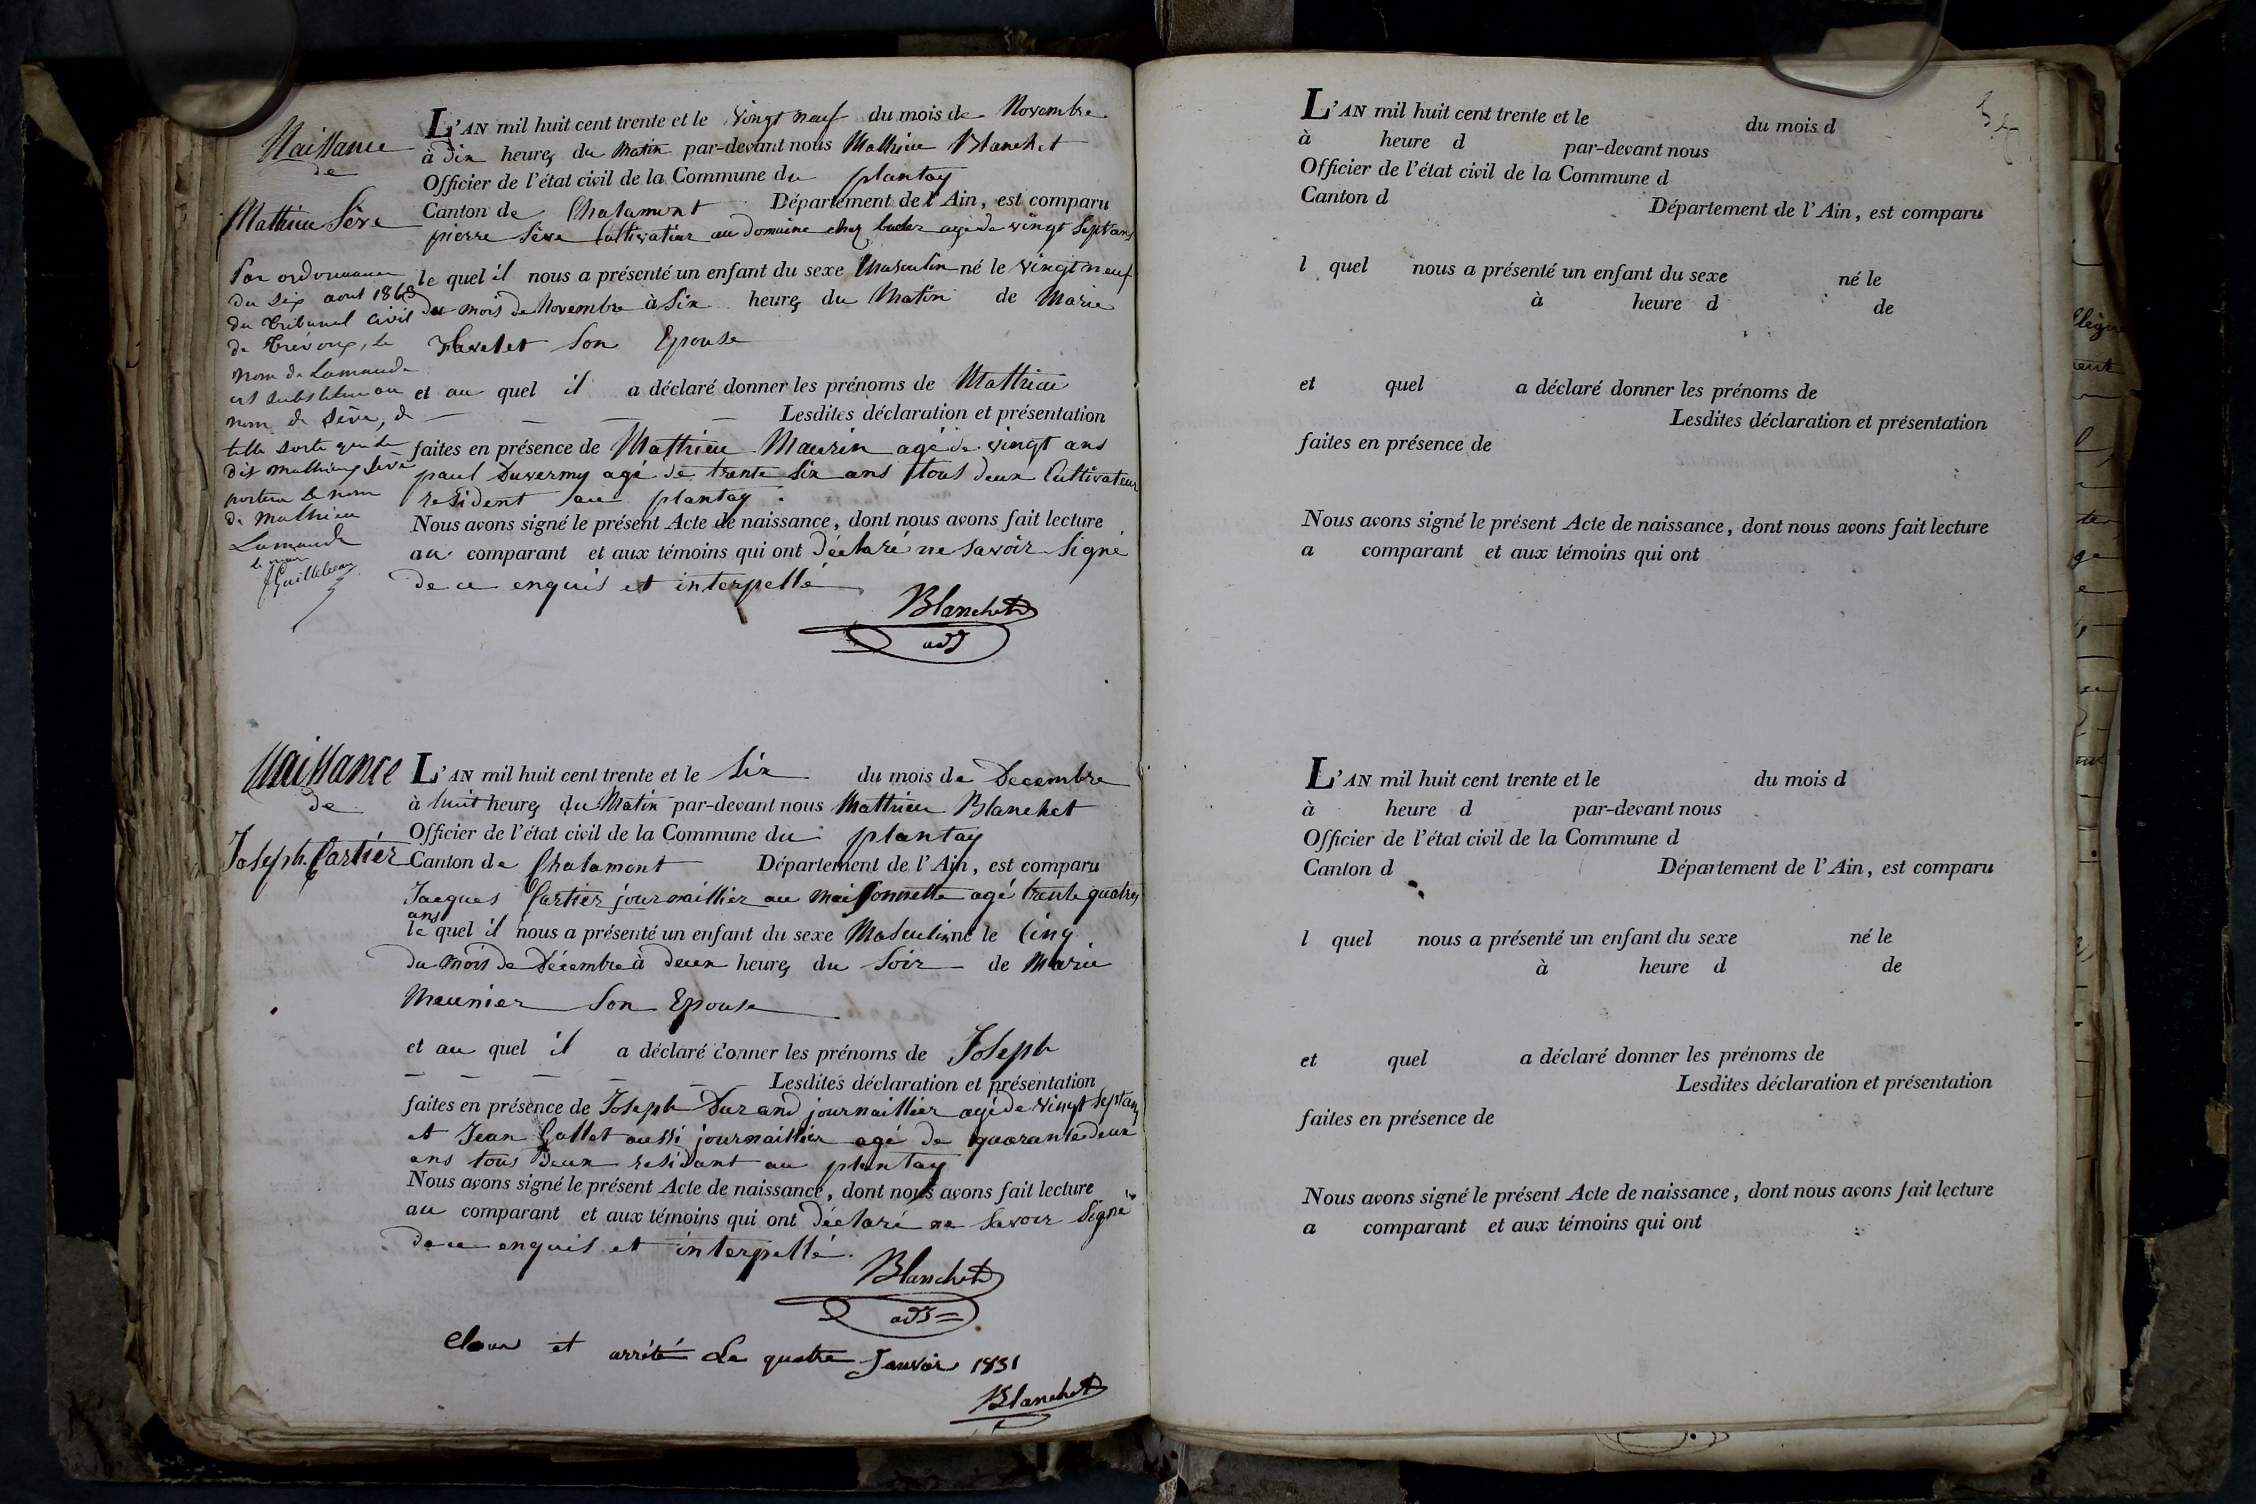 Naissance
de
Mathieu Sève
Par ordonnance
du six aout 1868
du tribunal civil
de Trevoux, le
nom de Lamande
est substitué au
nom de Sève, de
telle sorte que le
dit Mathieu Sève
portera le nom
de Mathieu
Lamande
L'AN mil huit cent trente et le vingt neuf du mois de Novembre
à dix heures du Matin par-devant nous Mathieu Blanchet
Officier de l'état civil de la Commune du plantay
Canton de Chalamont Département de l'Ain, est comparu
pierre Sève Cultivateur au domaine chez agé de vingt Sept ans
le quel il nous a présenté un enfant du sexe Masculin né le vingt neuf
du mois de Novembre à Six heures du Matin de Marie
Son Epouse
et au quel il a déclaré donner les prénoms de Mathieu
Lesdites déclaration et présentation
faites en présence de Mathieu Maurin agé de vingt ans
paul Duvermy agé de trante Six ans tous deux Cultivateur
resident au plantay.
Nous avons signé le présent Acte de naissance, dont nous avons fait lecture
au comparant et aux témoins qui ont déclaré ne savoir Signé
de ce enquis et interpellé
Blanchet
adj
Naissance
de
Joseph Cartier
L'AN mil huit cent trente et le Six du mois de Decembre
à huit heures du Matin par-devant nous Mathieu Blanchet
Officier de l'état civil de la Commune du plantay
Canton de Chalamont Département de l'Ain, est comparu
Jacques Cartier journaillier au Maissonnette agé trente quatres
ans
le quel il nous a présenté un enfant du sexe Masculin né le Cinq
du mois de Décembre à deux heures du Soir de Marie
Meunier Son Epouse
et au quel il a déclaré donner les prénoms de Joseph
Lesdites déclaration et présentation
faites en présence de Joseph Durand journaillier agé de vingt Sept ans
et Jean Gallet aussi journaillier agé de quarante deux
ans tous deux residant au plantay
Nous avons signé le présent Acte de naissance, dont nous avons fait lecture
au comparant et aux témoins qui ont déclaré ne Savoir Signé
de ce enquis et interpellé.
Blanchet
adj
Clour et arrêté Le quatre Janvier 1831
Blanchet
L'AN mil huit cent trente et le du mois d
à heure d par-devant nous
Officier de l'état civil de la Commune d
Canton d Département de l'Ain, est comparu
l quel nous a présenté un enfant du sexe né le
à heure d de
et quel a déclaré donner les prénoms de
Lesdites déclaration et présentation
faites en présence de
Nous avons signé le présent Acte de naissance, dont nous avons fait lecture
a comparant et aux témoins qui ont
L'AN mil huit cent trente et le du mois d
à heure d par-devant nous
Officier de l'état civil de la Commune d
Canton d Département de l'Ain, est comparu
l quel nous a présenté un enfant du sexe né le
à heure d de
et quel a déclaré donner les prénoms de
Lesdites déclaration et présentation
faites en présence de
Nous avons signé le présent Acte de naissance, dont nous avons fait lecture
a comparant et aux témoins qui ont